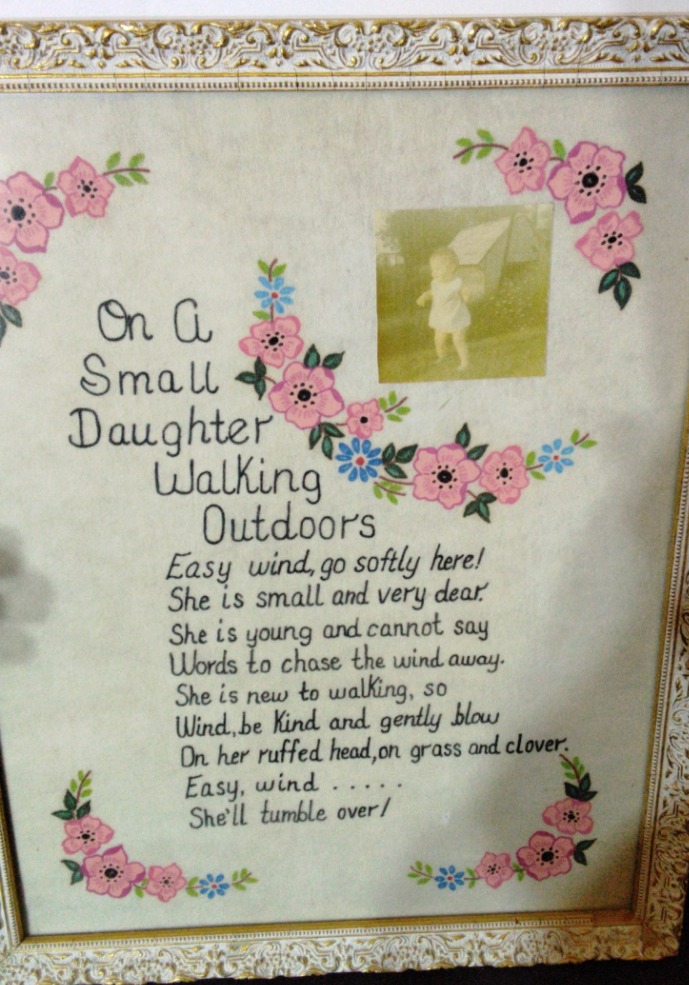 On A
Small
Daughter
Walking
Outdoors
Easy wind, go softly here!
She is small and very dear.
She is young and cannot say
Words to chase the wind away.
She is new to walking, so
Wind, be kind and gently blow
On her ruffed head, on grass and clover.
Easy, wind .....
She'll tumble over!